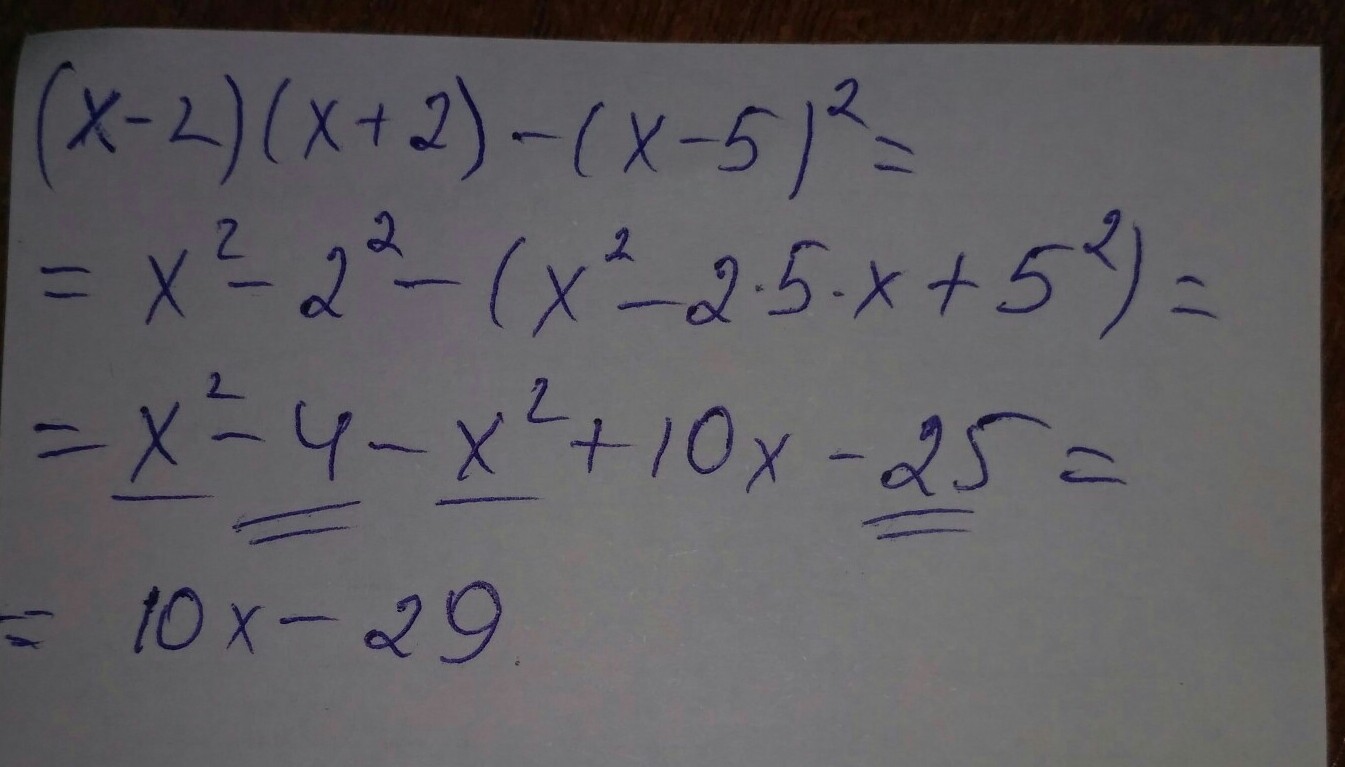 (x-2)(x+2)-(x-5)²=
= x²-2²-(x²-2·5·x+5²)=
= x²-4-x²+10x-25=
= 10x-29.